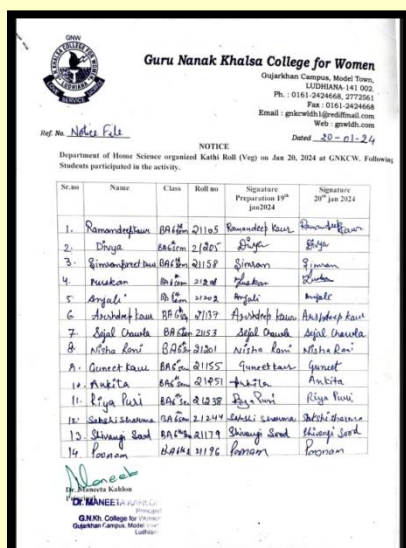 GNW
KHALSA COLLEGE FOR WOMEN
LUDHIANA
SERVICE
Guru Nanak Khalsa College for Women
Gujarkhan Campus, Model Town,
LUDHIANA-141 002.
Ph. : 0161-2424668, 2772561
Fax : 0161-2424668
Email : gnkcwldh1@rediffmail.com
Web : gnwldh.com
Ref. No. Notice File
Dated 20-01-24
NOTICE
Department of Home Science organized Kathi Roll (Veg) on Jan 20, 2024 at GNKCW. Following
Students participated in the activity.
Sr.no Name Class Roll no Signature Preparation 19th jan2024 Signature 20th jan 2024
1. Ramandeep Kaur BA 6th Sem 21105 Ramandeep Kaur Ramandeep Kaur
2. Divya BA 6 Sem 21205 Divya Divya
3. Simranpreet Kaur BA 6th Sem 21158 Simran Simran
4. Muskan BA 6 Sem Muskan
5 Anjali BA 6th Sem 21202 Anjali Anjali
6 Arshdeep kaur BA 6 21137 Arshdeep kaur Arshdeep kaur
7. Sejal Chawla BA 6 Sem 21153 Sejal Chawla Sejal Chawla
8. Nisha Rani BA 6 Sem 21201 Nisha Rani Nisha Rani
Guneet Kaur BA 6th Sem 21155 Guneet kaur Guneet
10. Ankita BA 6th Sem Ankita Ankita
11. Riya Puri BA 6th Sem 21238 Riya Puri Riya Puri
12. Sakshi Sharma BA 6th Sem 21244 Sakshi Sharma Sakshi Sharma
13. Shivangi Sood BA 6th Sem 21179 Shivangi Sood Shivangi Sood
14. Poonam BA 6th Sem 21196 Poonam Poonam
Maneet
Dr. Maneeta Kahlon
Principal
Dr. MANEETA KAHLON
Principal
G.N.Kh. College for Women
Gujarkhan Campus, Model Town
Ludhiana